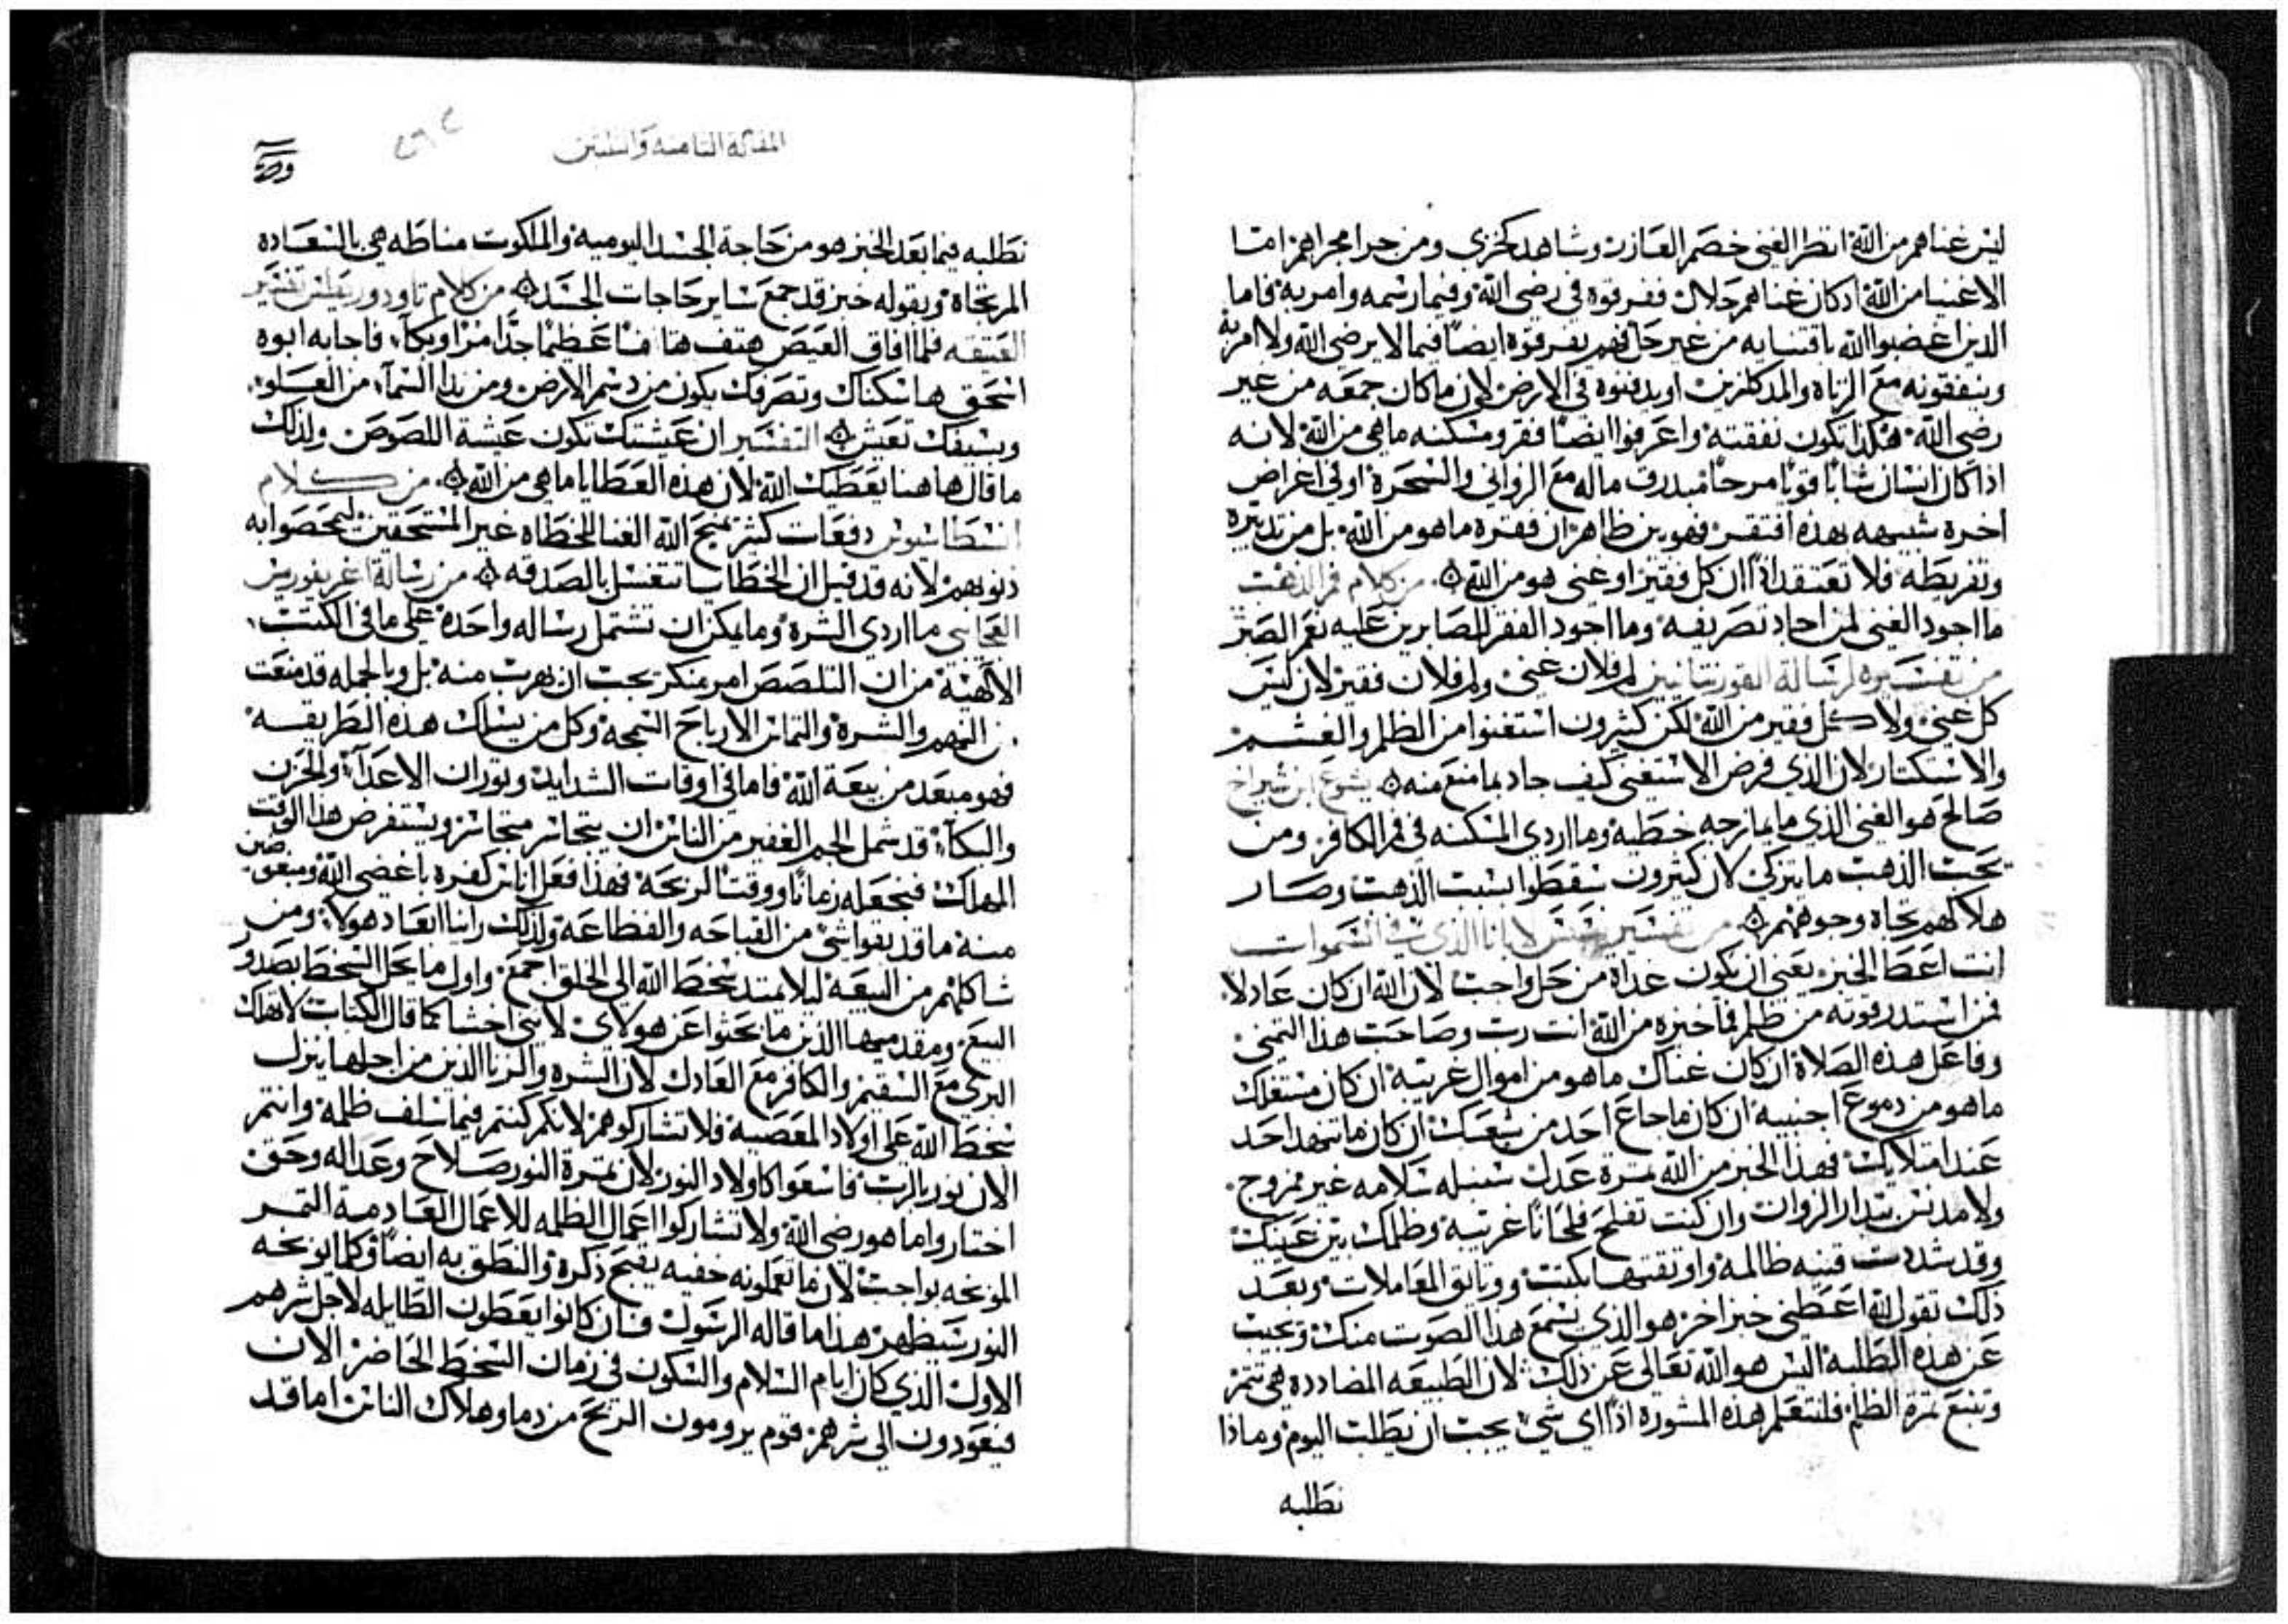 ليس غناهم من الله انظر الغني خصم العازر وشاهد كخزي ومن جرا مجراهم اما
الاغنيا من الله اذ كان غناهم حلال ففرقوه في رضى الله وفيما رسمه وامر به فاما
الذين اغضبوا الله باقتنايه من غير حل فهم يفرقوه ايضاً فيما لا يرضى الله ولا امر به
وينفقونه مع الزناه والمداكرين او يدفنوه في الارض لان ما كان جمعه من غير
رضى الله هكذا تكون نفقته واعرفوا ايضاً فقر ومسكنه ماهي من الله لانه
اذا كان انسان شاباً قوياً مرحاً مبدرق ماله مع الزواني والسحرة او في اغراض
اخره شبيهه بهذه افتقر فهو بين ظاهر ان فقره ما هو من الله بل من تدبيره
وتفريطه فلا تعتقد اذاً ان كل فقير او غني هو من الله من كلام فم الذهب
ما اجود الغني لمن اجاد تصريفه وما اجود الفقر للصابرين عليه نعم الصبر
من تفسيره لرسالة القورنتانيين لم فلان غني ولم فلان فقير لان ليس
كل غني ولا كل فقير من الله لكن كثيرون استغنوا من الظلم والغشم
والاستكتار لان الذي فرض الا استغنى كيف جاد بما منع منه يشوع ابن شيراخ
صالح هو الغني الذي ما يمازجه خطيه وما اردي المسكنه في فم الكافر ومن
يحب الذهب ما يتزكى لان كثيرون سقطوا بسبب الذهب وصار
هلاكهم تجاه وجوههم من تفسير لابانا الذي في السموات
انت اعطا الخبز يعني ان يكون غداه من حل واجب لان الله ان كان عادلا
فمن استدر قوته من ظلم فما خبزه من الله انت رب وصاحب هذا التمني
وفاعل هذه الصلاة ان كان غناك ما هو من اموال غريبه ان كان مستغلك
ما هو من دموع اجنبيه ان كان ما جاع احد من شبعك ان كان ما تنهد احد
عند امتلايك فهذا الخبز من الله ثمرة عدل سنبله سلامه غير ممزوج
ولا مدنس بتدار الزوان وان كنت تفلح فلحاناً غريبه وظلمك بين عينيك
وقد شددت قنيه ظالمه واوثقتها بكتب ووثايق المعاملات وبعد
ذلك تقول لله اعطني خبز اخر هو الذي يسمع هذا الصوت منك ويجيب
عن هذه الطلبه اليس هو الله تعالى عن ذلك لان الطبيعه المضادده هي تثمر
وتنبع ثمرة الظلم فلنتعلم هذه المشوره اذاً اي شي يجب ان يطلب اليوم وماذا
نطلبه
المقاله الثامنه والستين
نطلبه فيما بعد الخبز هو من حاجة الجسد اليوميه والملكوت مناطه هي بالسعاده
المرتجاة وبقوله خبز قد جمع ساير حاجات الجسد من كلام تاودوريطس تفسير
العتيقه فلما افاق العيص هتف هتافاً عظيماً جداً مراً وبكا فاجابه ابوه
اسحق ها سكناك وتصرفك يكون من دسم الارض ومن ندا السما من العلو
وبسيفك تعيش التفسير ان عيشتك تكون عيشة اللصوص ولذلك
ما قال ها هنا يعطيك الله لان هذه العطايا ما هي من الله من كلام
انسطاسيوس دفعات كثيره يمنح الله الغنا للخطاه غير المستحقين ليمحصوا به
ذنوبهم لانه قد قيل ان الخطايا تتغسل بالصدقه من رسالة اغريغوريس
العجايبي ما اردي الشره وما يمكن ان تشتمل رساله واحده على ما في الكتب
الالهية من ان التلصص امر منكر يجب ان يهرب منه بل وبالجمله قد منعت
من النهم والشره والتماس الارباح السمجه وكل من يسلك هذه الطريقه
فهو مبعد من بيعة الله فاما في اوقات الشدايد وثوران الاعدا والحزن
والبكا قد شمل الجم الغفير من الناس ان يتجاسر متجاسر ويستفرض هذا الوقت
المهلك فيجعله زماناً ووقتاً لربحه فهذا فعل اناس كفره باغضي الله ومبغوضين
منه ما قد يفوا شي من القباحه والفظاعه ولذلك راينا ابعاد هولاء ومن
شاكلهم من البيعه ليلا يمتد سخط الله الى الخلق اجمع واول ما يحل السخط بصدور
البيع ومقدميها الذين ما بحثوا عن هولاي لانني اخشا كما قال الكتاب لا تهلك
البري مع السقيم والكافر مع العادل لان الشره والزنا الذين من اجلها ينزل
سخط الله على اولاد المعصيه فلا تشاركوهم لانكم كنتم فيما سلف ظلمه وانتم
الان نور بالرب فاسعوا كاولاد النور لان ثمرة النور صلاح وعداله وحق
اختاروا ما هو رضى الله ولا تشاركوا اعمال الظلمه للاعمال العادمة الثمر
الموبخه بواجب لان ما تعملونه خفيه يقبح ذكره والنطق به ايضاً وكلما يوبخه
النور سيظهر هذا ما قاله الرسول فان كانوا يعطون الطايله لاجل شرهم
الاول الذي كان ايام السلام والسكون في زمان السخط الحاضر الان
فيعودون الى شرهم قوم يرومون الربح من دما وهلاك الناس اما قد